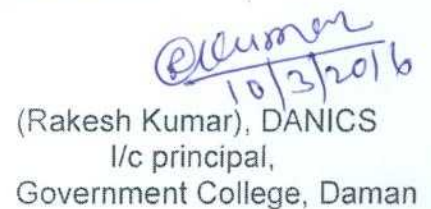 RKumar
10/3/2016
(Rakesh Kumar), DANICS
I/c principal,
Government College, Daman